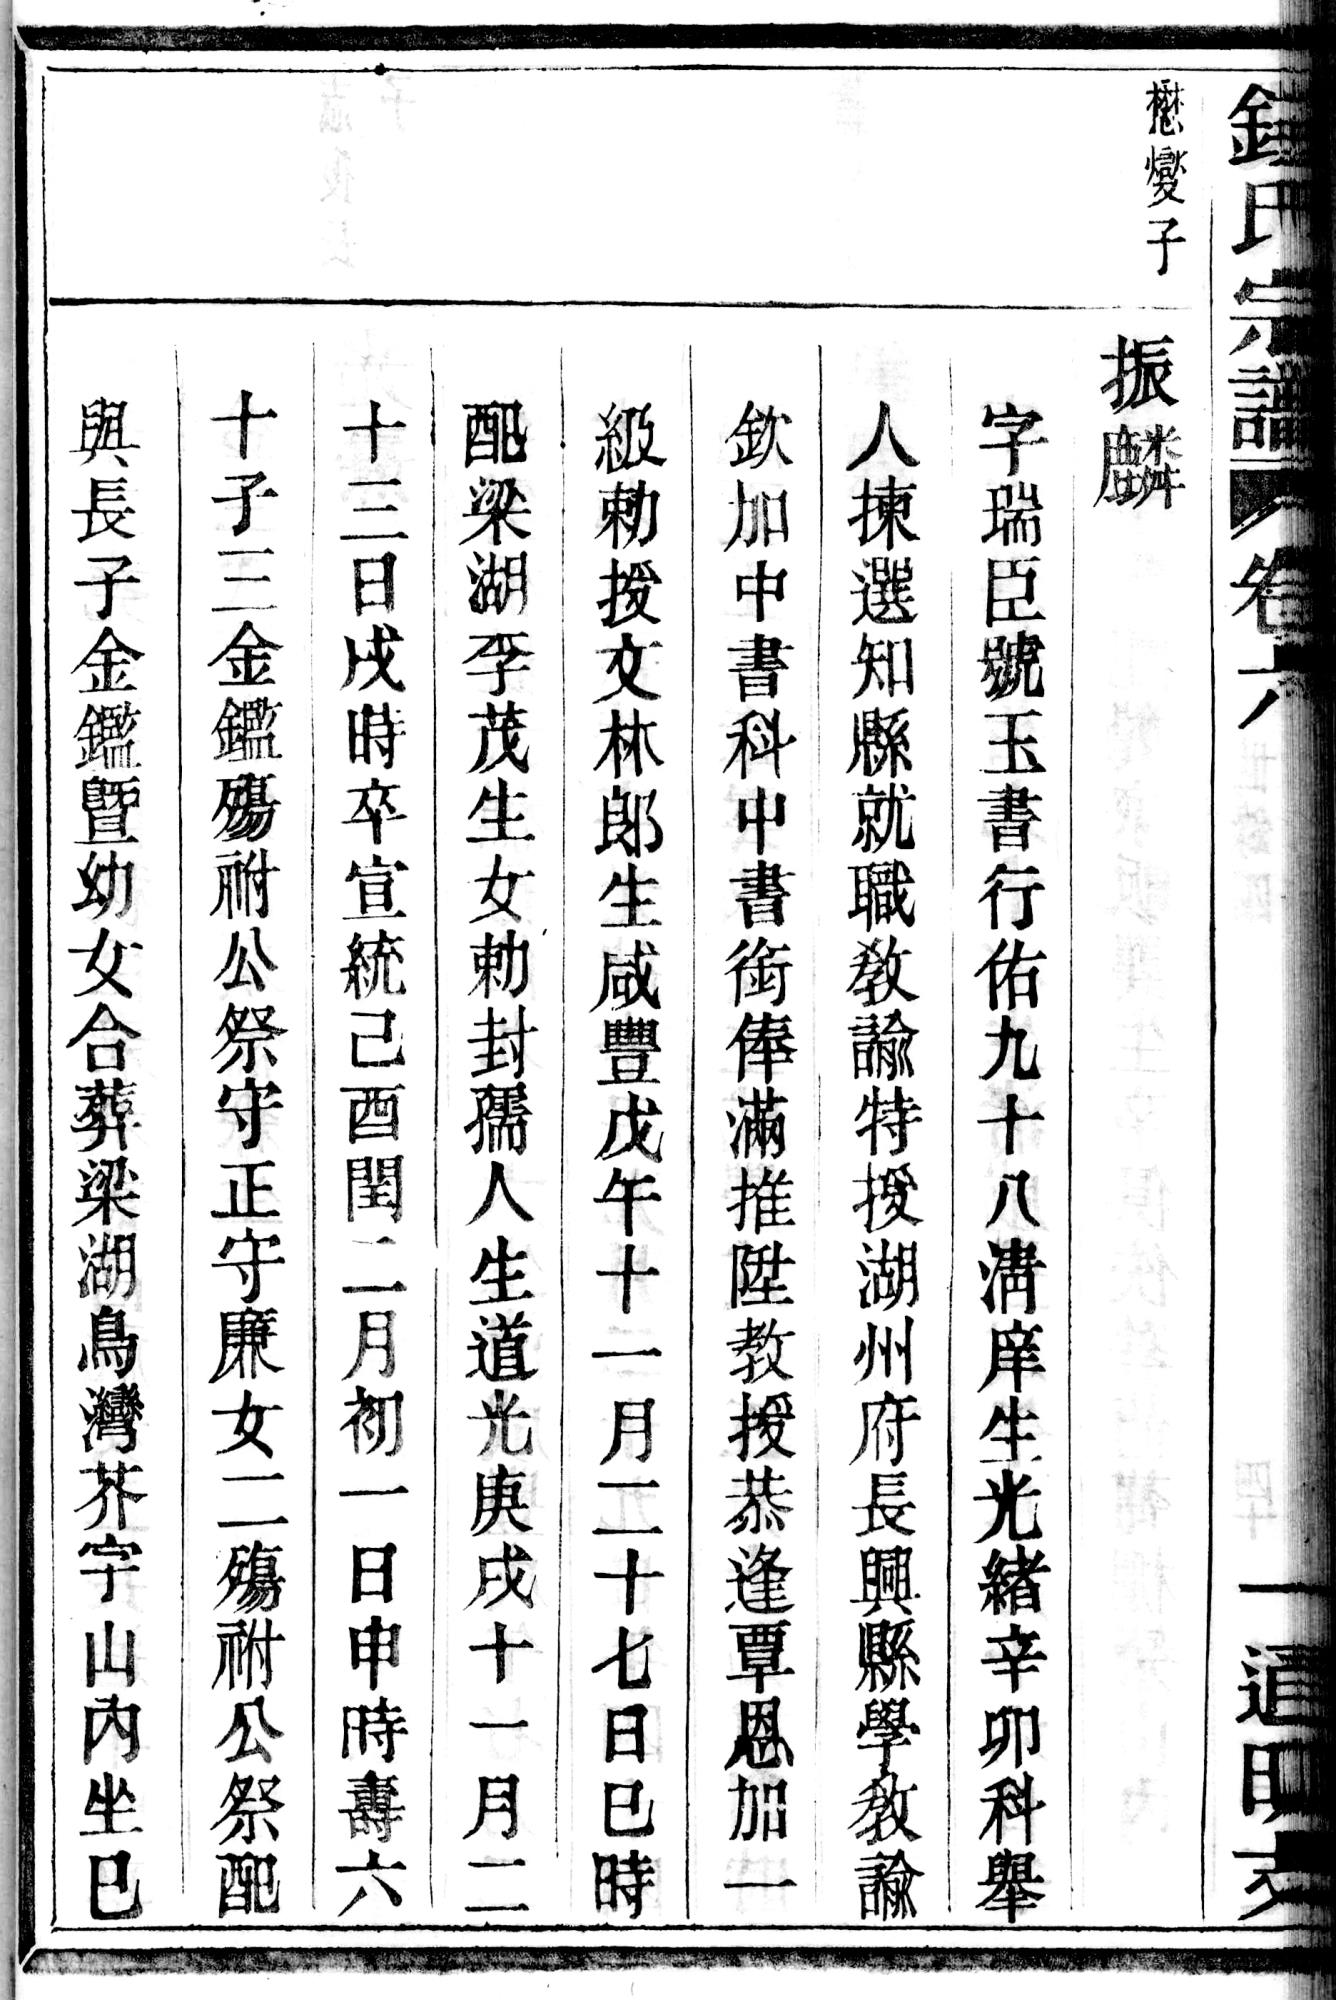 鍾氏宗譜 卷六 一 道明支
懋燮子
振麟
字瑞臣號玉書行佑九十八淸庠生光緒辛卯科舉
人揀選知縣就職教諭特授湖州府長興縣學教諭
欽加中書科中書銜俸滿推陞教授恭逢覃恩加一
級勅授文林郎生咸豐戊午十一月二十七日巳時
配梁湖李茂生女勅封孺人生道光庚戌十一月二
十三日戌時卒宣統己酉閏二月初一日申時壽六
十子三金鑑殤祔公祭守正守廉女二殤祔公祭配
與長子金鑑暨幼女合葬梁湖鳥灣芥字山內坐巳